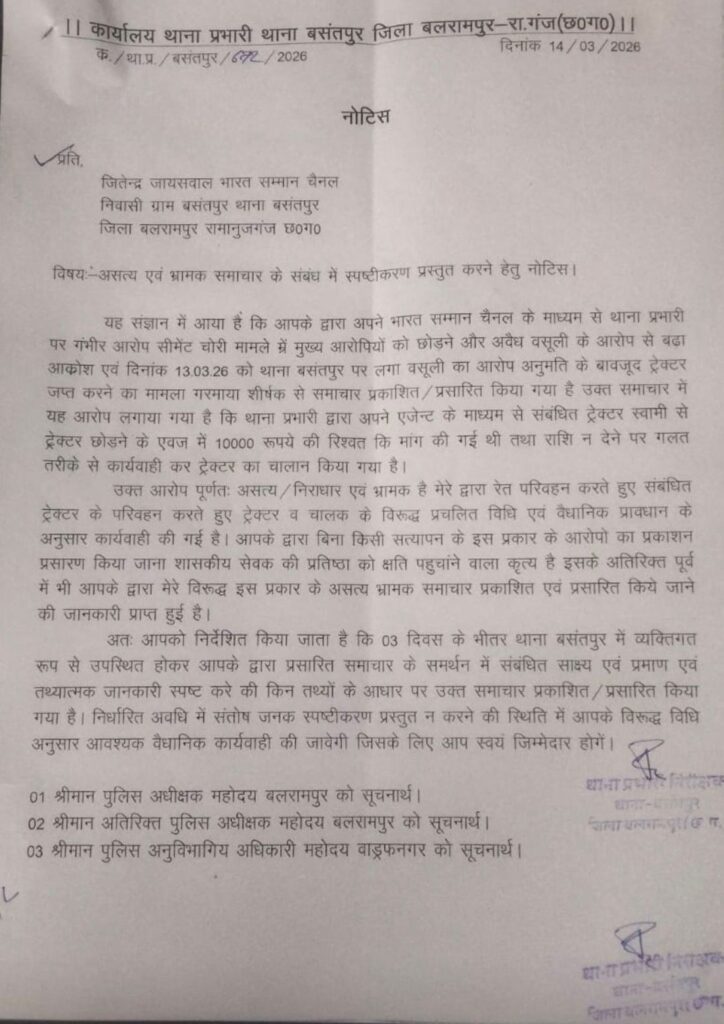 ।। कार्यालय थाना प्रभारी थाना बसंतपुर जिला बलरामपुर–रा.गंज(छ0ग0)।।
क./था.प्र./बसंतपुर/672/2026 दिनांक 14/03/2026
नोटिस
प्रति,
जितेन्द्र जायसवाल भारत सम्मान चैनल
निवासी ग्राम बसंतपुर थाना बसंतपुर
जिला बलरामपुर रामानुजगंज छ0ग0
विषयः–असत्य एवं भ्रामक समाचार के संबंध में स्पष्टीकरण प्रस्तुत करने हेतु नोटिस।
यह संज्ञान में आया है कि आपके द्वारा अपने भारत सम्मान चैनल के माध्यम से थाना प्रभारी
पर गंभीर आरोप सीमेंट चोरी मामले में मुख्य आरोपियों को छोड़ने और अवैध वसूली के आरोप से बढ़ा
आक्रोश एवं दिनांक 13.03.26 को थाना बसंतपुर पर लगा वसूली का आरोप अनुमति के बावजूद ट्रेक्टर
जप्त करने का मामला गरमाया शीर्षक से समाचार प्रकाशित/प्रसारित किया गया है उक्त समाचार में
यह आरोप लगाया गया है कि थाना प्रभारी द्वारा अपने एजेन्ट के माध्यम से संबंधित ट्रेक्टर स्वामी से
ट्रेक्टर छोड़ने के एवज में 10000 रूपये की रिश्वत कि मांग की गई थी तथा राशि न देने पर गलत
तरीके से कार्यवाही कर ट्रेक्टर का चालान किया गया है।
उक्त आरोप पूर्णतः असत्य/निराधार एवं भ्रामक है मेरे द्वारा रेत परिवहन करते हुए संबंधित
ट्रेक्टर के परिवहन करते हुए ट्रेक्टर व चालक के विरूद्ध प्रचलित विधि एवं वैधानिक प्रावधान के
अनुसार कार्यवाही की गई है। आपके द्वारा बिना किसी सत्यापन के इस प्रकार के आरोपो का प्रकाशन
प्रसारण किया जाना शासकीय सेवक की प्रतिष्ठा को क्षति पहुचांने वाला कृत्य है इसके अतिरिक्त पूर्व
में भी आपके द्वारा मेरे विरूद्ध इस प्रकार के असत्य भ्रामक समाचार प्रकाशित एवं प्रसारित किये जाने
की जानकारी प्राप्त हुई है।
अतः आपको निर्देशित किया जाता है कि 03 दिवस के भीतर थाना बसंतपुर में व्यक्तिगत
रूप से उपस्थित होकर आपके द्वारा प्रसारित समाचार के समर्थन में संबंधित साक्ष्य एवं प्रमाण एवं
तथ्यात्मक जानकारी स्पष्ट करे की किन तथ्यों के आधार पर उक्त समाचार प्रकाशित/प्रसारित किया
गया है। निर्धारित अवधि में संतोष जनक स्पष्टीकरण प्रस्तुत न करने की स्थिति में आपके विरूद्ध विधि
अनुसार आवश्यक वैधानिक कार्यवाही की जावेगी जिसके लिए आप स्वयं जिम्मेदार होगें।
थाना प्रभारी निरीक्षक
थाना–बसंतपुर
जिला बलरामपुर(छ.ग.
01 श्रीमान पुलिस अधीक्षक महोदय बलरामपुर को सूचनार्थ।
02 श्रीमान अतिरिक्त पुलिस अधीक्षक महोदय बलरामपुर को सूचनार्थ।
03 श्रीमान पुलिस अनुविभागिय अधिकारी महोदय वाड्रफनगर को सूचनार्थ।
थाना प्रभारी निरीक्षक
थाना–बसंतपुर
जिला बलरामपुर(छ.ग.